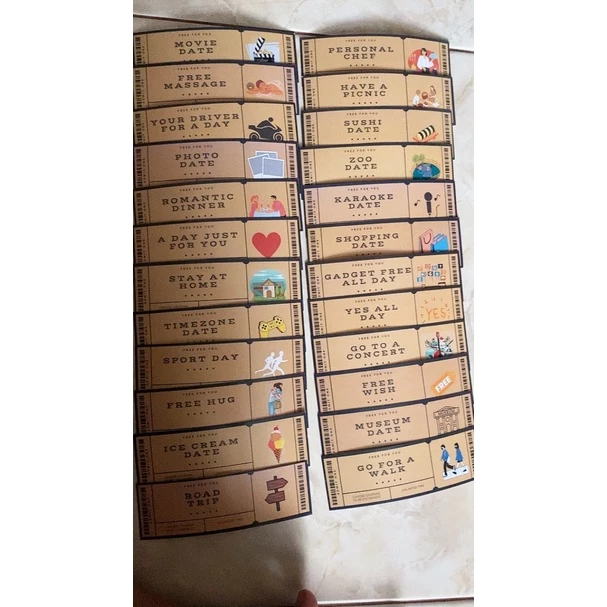 FREE FOR YOU
MOVIE
DATE
FREE FOR YOU
FREE
MASSAGE
FREE FOR YOU
YOUR DRIVER
FOR A DAY
FREE FOR YOU
PHOTO
DATE
FREE FOR YOU
ROMANTIC
DINNER
FREE FOR YOU
A DAY JUST
FOR YOU
FREE FOR YOU
STAY AT
HOME
FREE FOR YOU
TIMEZONE
DATE
FREE FOR YOU
SPORT DAY
FREE FOR YOU
FREE HUG
FREE FOR YOU
ICE CREAM
DATE
FREE FOR YOU
ROAD
TRIP
FREE FOR YOU
PERSONAL
CHEF
FREE FOR YOU
HAVE A
PICNIC
FREE FOR YOU
SUSHI
DATE
FREE FOR YOU
ZOO
DATE
FREE FOR YOU
KARAOKE
DATE
FREE FOR YOU
SHOPPING
DATE
FREE FOR YOU
GADGET FREE
ALL DAY
FREE FOR YOU
YES ALL
DAY
YES
FREE FOR YOU
GO TO A
CONCERT
FREE FOR YOU
FREE
WISH
FREE
FREE FOR YOU
MUSEUM
DATE
FREE FOR YOU
GO FOR A
WALK